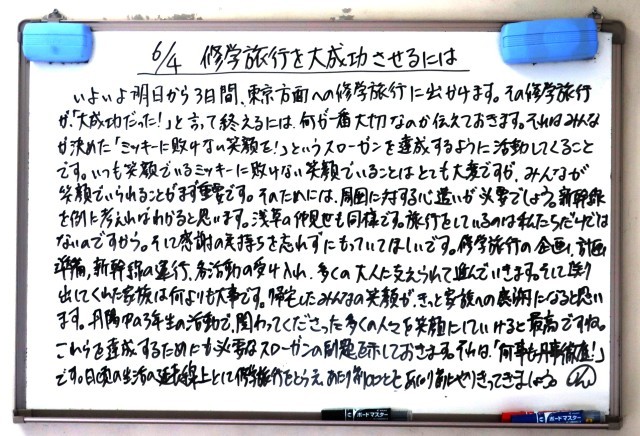 6/4 修学旅行を大成功させるには
いよいよ明日から3日間、東京方面への修学旅行に出かけます。その修学旅行
が「大成功だった!」と言って終えるには、何が一番大切なのか伝えておきます。それはみんな
が決めた「ミッキーに敗けない笑顔を!」というスローガンを達成するように活動してくること
です。いつも笑顔でいるミッキーに敗けない笑顔でいることはとても大変ですが、みんなが
笑顔でいられることがまず重要です。そのためには、周囲に対する心遣いが必要でしょう。新幹線
を例に考えればわかると思います。浅草の仲見世も同様です。旅行をしているのは私たちだけでは
ないのですから。そして感謝の気持ちを忘れずにもっていてほしいです。修学旅行の企画、計画
準備、新幹線の運行、各活動の受け入れ、多くの大人に支えられて進んでいきます。そして送り
出してくれた家族は何よりも大事です。帰宅したみんなの笑顔が、きっと家族への表謝になると思い
ます。丹陽中の3年生の活動で、関わってくださった多くの人々を笑顔にしていけると最高ですね。
これらを達成するためにも必要なスローガンの副題を示しておきます。それは、「何事も凡事徹底!」
です。日頃の生活の延長線上として修学旅行をとらえ、あたり前のことをあたり前にやりきってきましょう。
ボードマスター
ボードマスター